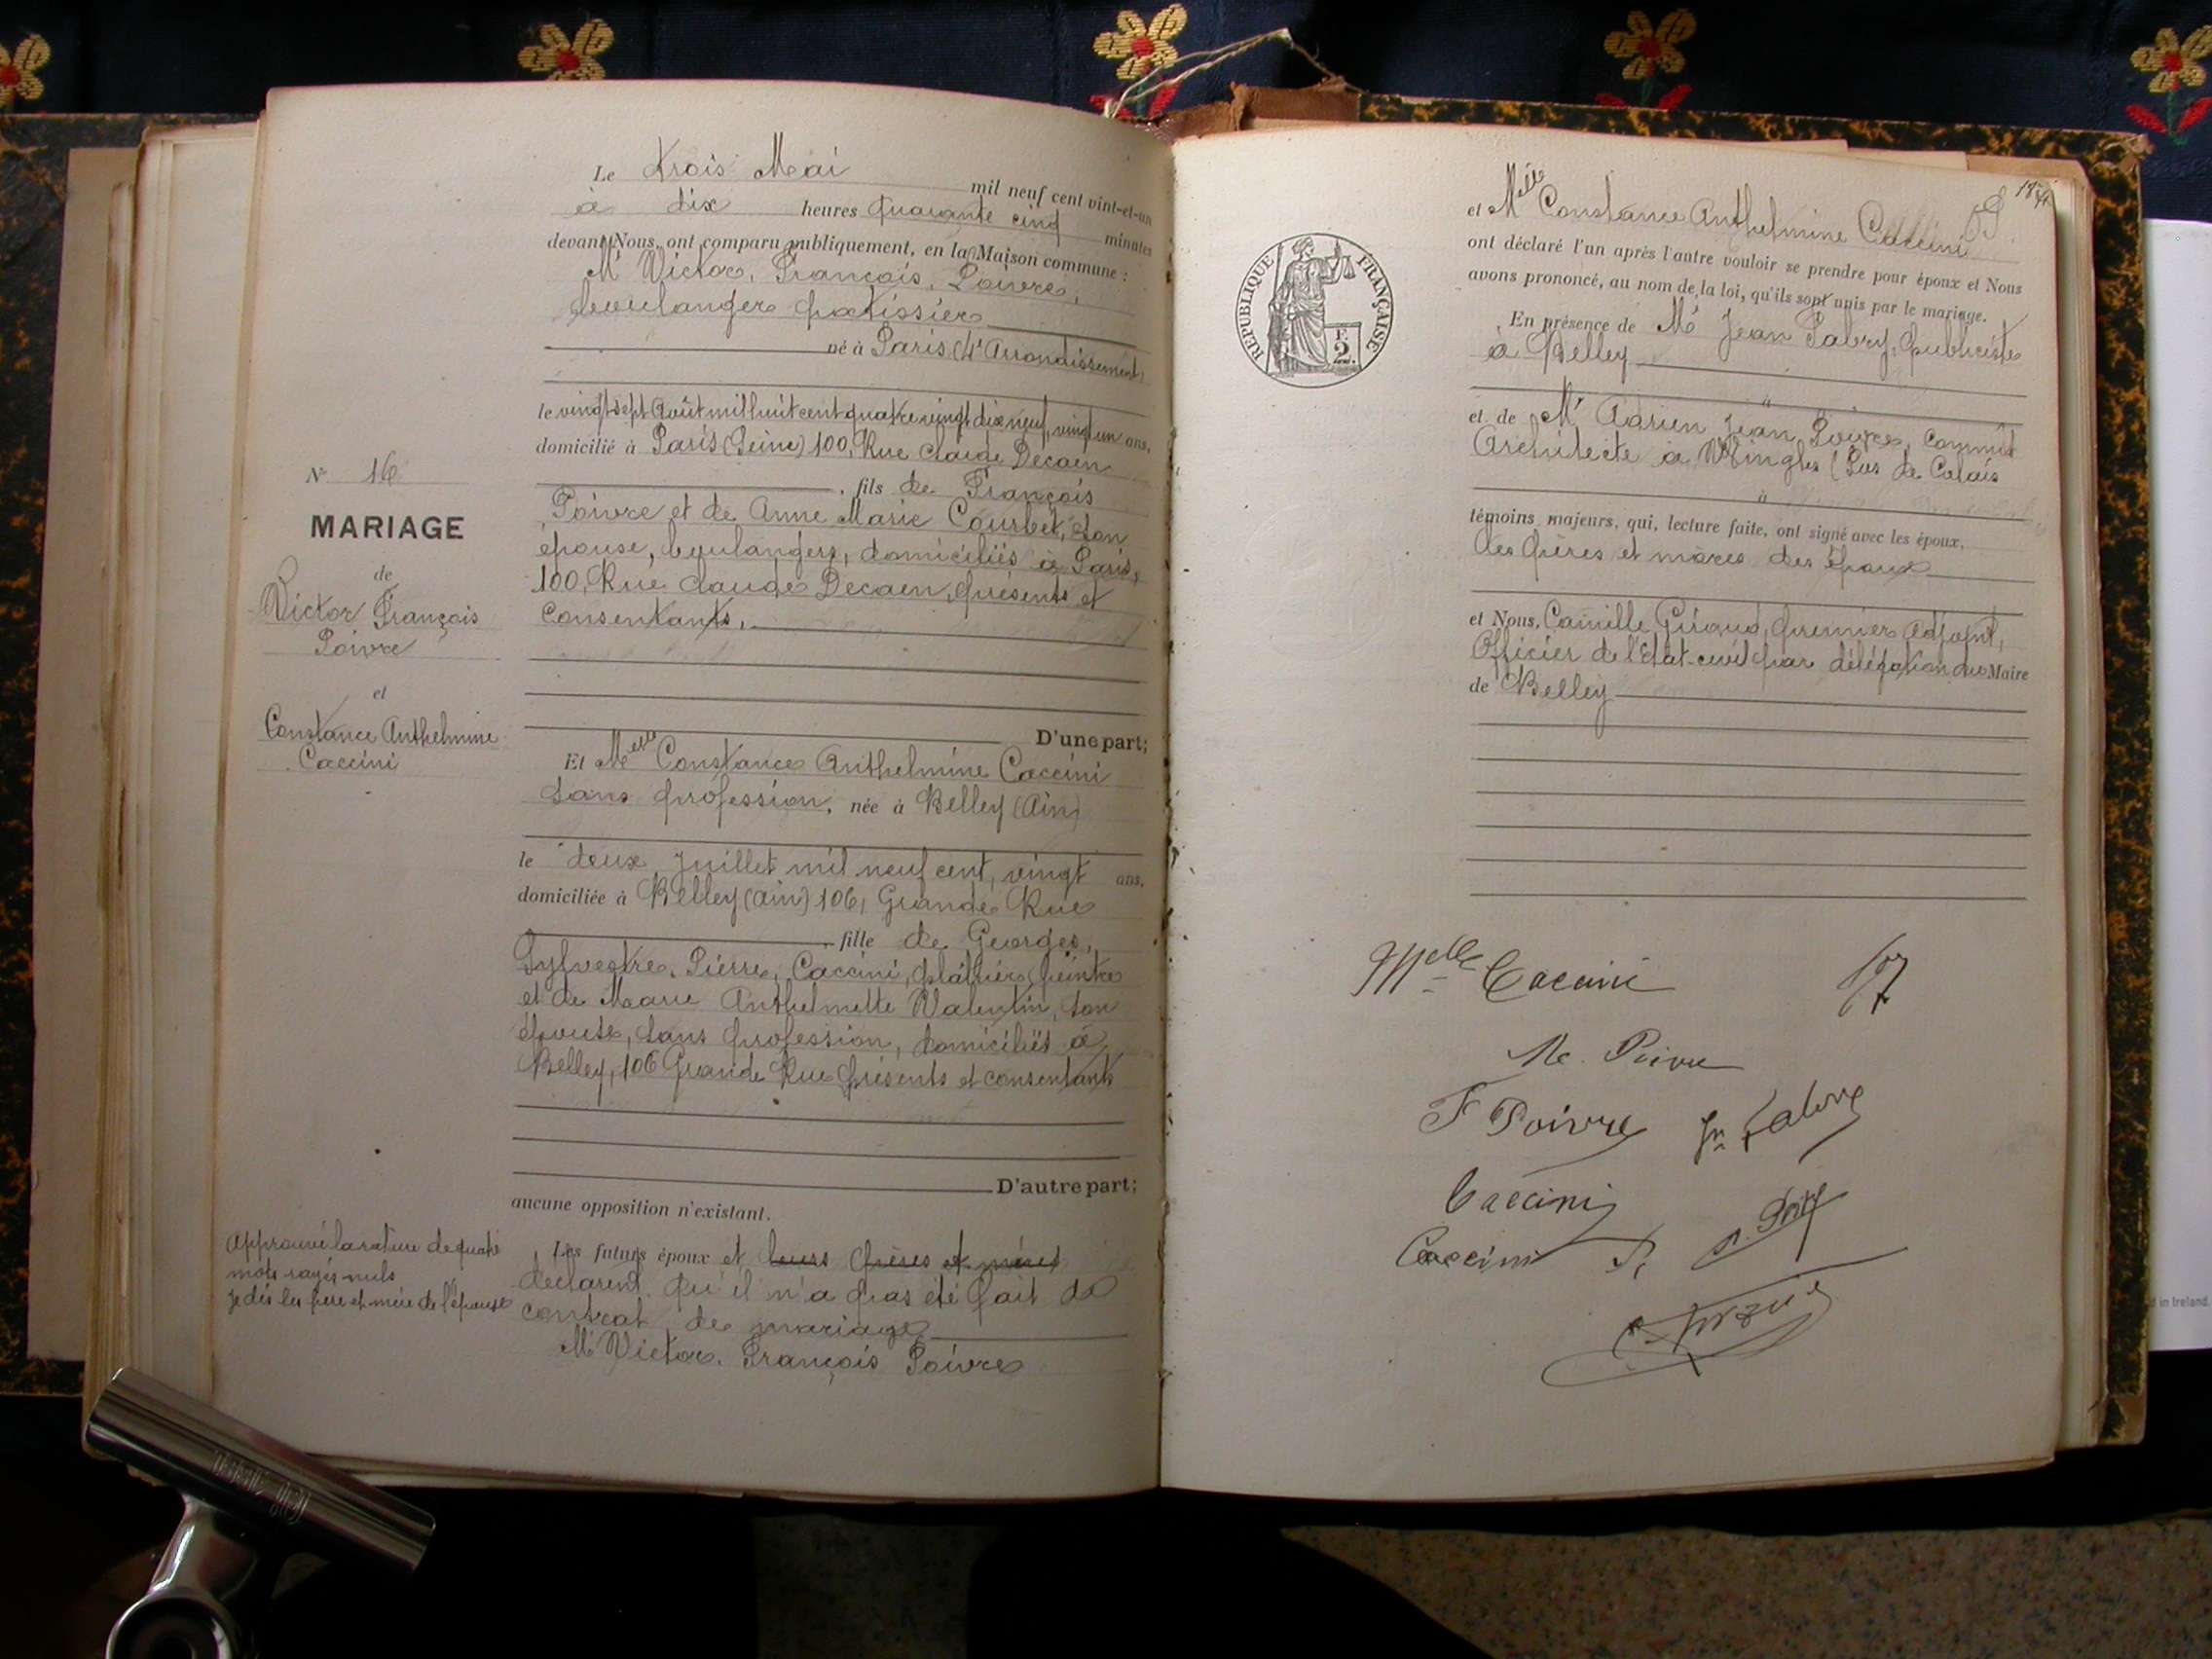 Le trois Mai mil neuf cent vint-et-un
à dix heures quarante cinq minutes
devant Nous, ont comparu publiquement, en la Maison commune :
Mr Victor, François, Poivre,
boulanger patissier
né à Paris (4e Arrondissement)
le vingt sept Août mil huit cent quatre vingt dix neuf, vingt un ans,
domicilié à Paris (Seine) 100, Rue Claude Decaen
, fils de François
Poivre et de Anne Marie Courbet, son
épouse, boulangers, domiciliés à Paris,
100, Rue Claude Decaen, présents et
consentants,
D'une part;
Et Melle Constance Anthelmine Caccini
sans profession, née à Belley (Ain)
le deux Juillet mil neuf cent, vingt ans,
domiciliée à Belley (Ain) 106, Grande Rue
fille de Georges,
Sylvestre, Pierre, Caccini, plâtrier peintre
et de Marie Anthelmette Valentin, son
épouse, sans profession, domiciliés à
Belley, 106 Grande Rue présents et consentants
D'autre part;
aucune opposition n'existant.
Les futurs époux et leurs pères et mères
déclarent qu'il n'a pas été fait de
contrat de mariage
Mr Victor, François Poivre
N° 16
MARIAGE
de
Victor François
Poivre
et
Constance Anthelmine
Caccini
Approuvé la rature de quatre
mots rayés nuls
et Melle Constance Anthelmine Caccini
ont déclaré l'un après l'autre vouloir se prendre pour époux et Nous
avons prononcé, au nom de la loi, qu'ils sont unis par le mariage.
En présence de Mr Jean Fabry, publiciste
à Belley
à
et de Mr Adrien Jean Poivre, commis
Architecte à Wingles (Pas de Calais
à
témoins majeurs, qui, lecture faite, ont signé avec les époux,
les pères et mères des époux
et Nous, Camille Giraud, premier adjoint,
Officier de l'état-civil par délégation du Maire
de Belley
RÉPUBLIQUE FRANÇAISE
2
Melle Caccini
Poivre
F Poivre
Caccini
Caccini
in Ireland.